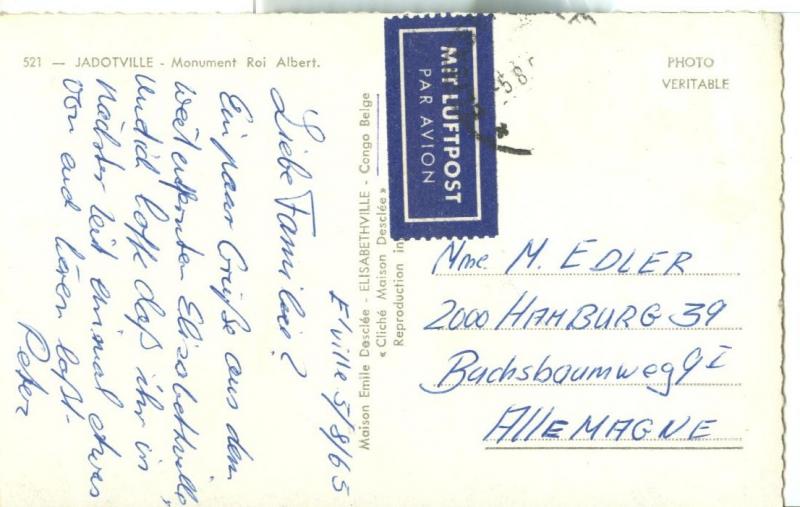 521 — JADOTVILLE - Monument Roi Albert.
PHOTO
VERITABLE
MIT LUFTPOST
PAR AVION
Maison Emile Desclée - ELISABETHVILLE - Congo Belge
« Cliché Maison Desclée »
Reproduction in
E'ville 5/8/65
Liebe Familie?
Ein paar Grüße aus dem
weit entfernten Elisabethville
und ich hoffe daß ihr in
nächster Zeit einmal etwas
von euch hören laßt.
Peter
Mme. M. EDLER
2000 HAMBURG 39
Buchsbaumweg 9 I
ALLEMAGNE